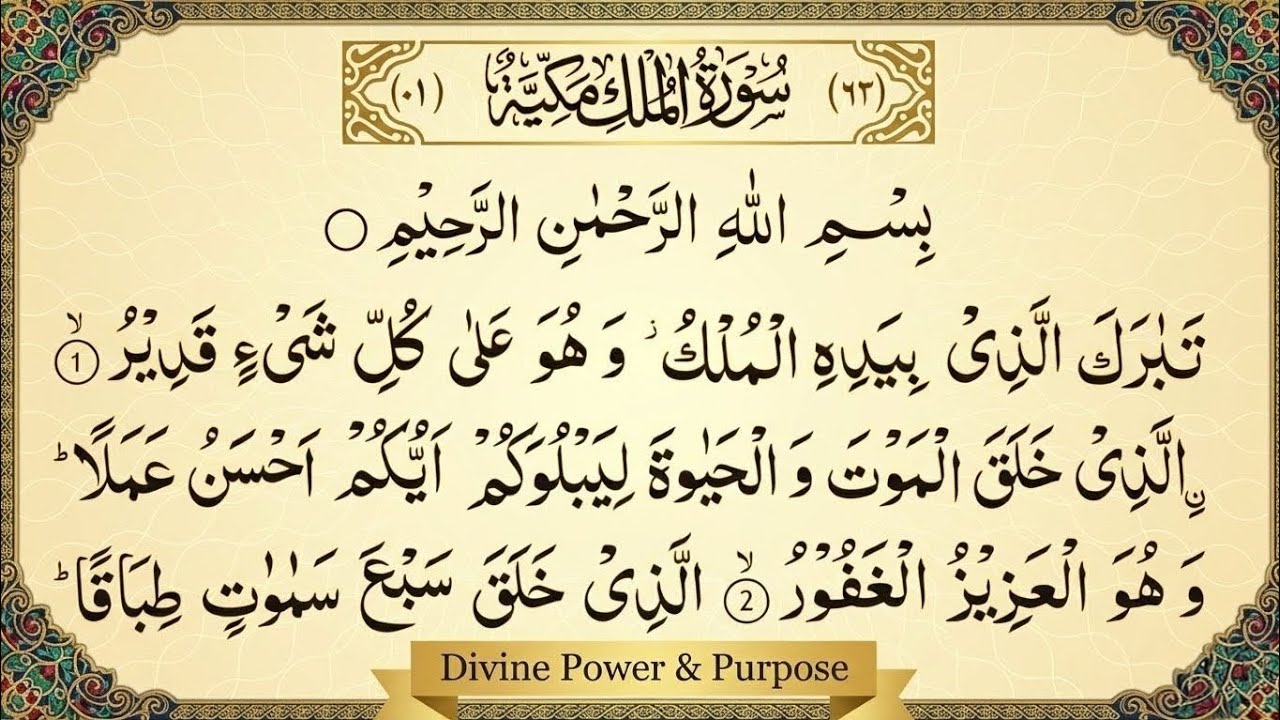 (٦٣) سُوْرَةُ الْمُلْكِ مَكِّيَّةٌ (٠١)
بِسْمِ اللّٰهِ الرَّحْمٰنِ الرَّحِيْمِ ○
تَبٰرَكَ الَّذِیْ بِیَدِهِ الْمُلْكُ ؗ وَ هُوَ عَلٰی كُلِّ شَیْءٍ قَدِیْرُ ۙ ①
ِ۟الَّذِیْ خَلَقَ الْمَوْتَ وَ الْحَیٰوةَ لِیَبْلُوَكُمْ اَیُّكُمْ اَحْسَنُ عَمَلًا ؕ
وَ هُوَ الْعَزِیْزُ الْغَفُوْرُ ۙ ② الَّذِیْ خَلَقَ سَبْعَ سَمٰوٰتٍ طِبَاقًا ؕ
Divine Power & Purpose